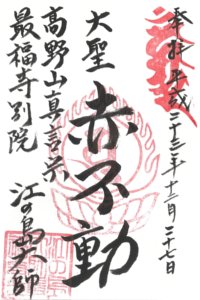 奉拝 平成二十三年十二月二十七日
大聖
赤不動
高野山真言宗
最福寺別院
江の島大師